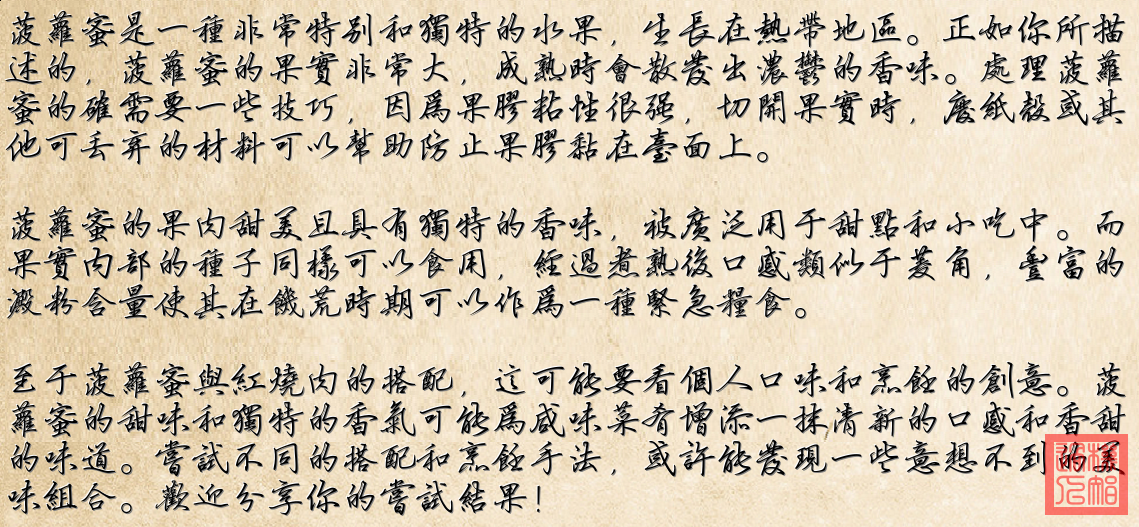 菠蘿蜜是一種非常特别和獨特的水果，生長在熱帶地區。正如你所描
述的，菠蘿蜜的果實非常大，成熟時會散發出濃鬱的香味。處理菠蘿
蜜的確需要一些技巧，因爲果膠粘性很强，切開果實時，廢紙殻或其
他可丢弃的材料可以幫助防止果膠黏在臺面上。
菠蘿蜜的果肉甜美且具有獨特的香味，被廣泛用于甜點和小吃中。而
果實内部的種子同樣可以食用，經過煮熟後口感類似于菱角，豐富的
澱粉含量使其在饑荒時期可以作爲一種緊急糧食。
至于菠蘿蜜與紅燒肉的搭配，這可能要看個人口味和烹飪的創意。菠
蘿蜜的甜味和獨特的香氣可能爲咸味菜肴增添一抹清新的口感和香甜
的味道。嘗試不同的搭配和烹飪手法，或許能發現一些意想不到的美
味組合。歡迎分享你的嘗試結果！